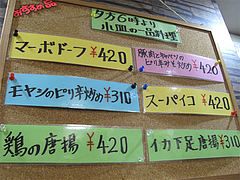 おすすめ品
夕方6時より
小皿の一品料理
マーボドーフ ¥420
豚肉とキャベツの
ピリ辛みそ炒め ¥420
モヤシのピリ辛炒め ¥310
スーパイコ ¥420
鶏の唐揚 ¥420
イカ下足唐揚 ¥310